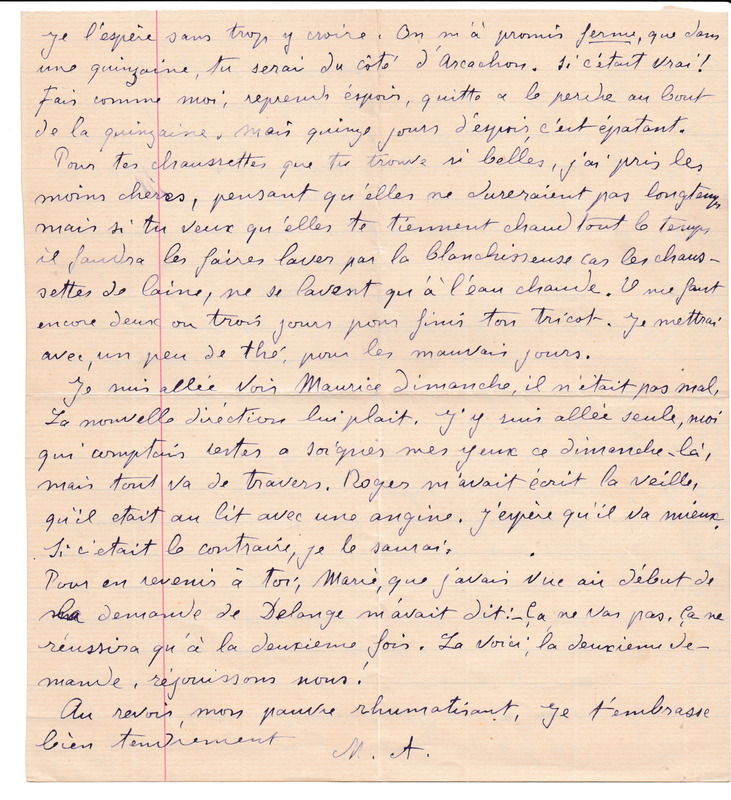 je l'espère sans trop y croire. On m'à promis ferme, que dans
une quinzaine, tu serai du côté d'Arcachon. Si c'était vrai!
Fais comme moi, reprends éspoir, quitte a le perdre au bout
de la quinzaine. Mais quinze jours d'espoir c'est épatant.
Pour tes chaussettes que tu trouve si belles, j'ai pris les
moins chères, pensant qu'elles ne dureraient pas longtemps
mais si tu veux qu'elles te tiennent chaud tout le temps
il faudra les faires laver par la blanchisseuse car les chaus-
settes de laine, ne se lavent qu'à l'eau chaude. Il me faut
encore deux ou trois jours pour finir ton tricot. Je mettrai
avec, un peu de thé, pour les mauvais jours.
Je suis allée voir Maurice dimanche, il n'était pas mal.
La nouvelle diréction lui plait. J'y suis allée seule, moi
qui comptais rester a soigner mes yeux ce dimanche-là,
mais tout va de travers. Roger m'avait écrit la veille,
qu'il etait au lit avec une angine. J'espère qu'il va mieux.
Si c'etait le contraire, je le saurai.
Pour en revenir à toi, Marie, que j'avais vue au début de
la demande de Delange m'avait dit:- Ça ne vas pas. Ça ne
réussira qu'à la deuxieme fois. La voici, la deuxieme de-
mande, réjouissons nous!
Au revoir, mon pauvre rhumatisant, Je t'embrasse
bien tendrement
M. A.